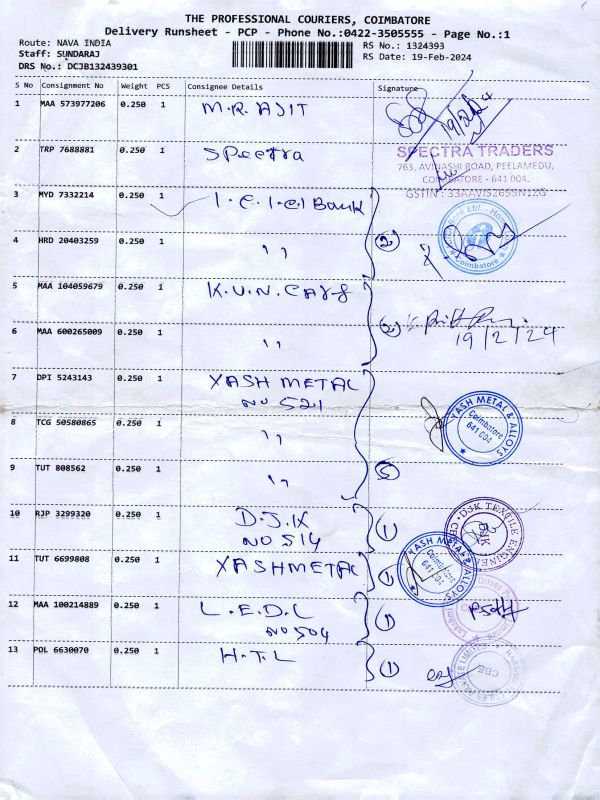 THE PROFESSIONAL COURIERS, COIMBATORE
Delivery Runsheet - PCP - Phone No.:0422-3505555 - Page No.:1
Route: NAVA INDIA
RS No.: 1324393
Staff: SUNDARAJ
RS Date: 19-Feb-2024
DRS No.: DCJB132439301
S No Consignment No Weight PCS Consignee Details Signature
1 MAA 573977206 0.250 1 M.R. AJIT
19/2/24
2 TRP 7688881 0.250 1 Spectra
SPECTRA TRADERS
763, AVINASHI ROAD, PEELAMEDU,
COIMBATORE - 641 004.
GSTIN : 33AAVIS2655N1ZG
3 MYD 7332214 0.250 1 I.C.I.CI Bank
4 HRD 20403259 0.250 1 ,, 2
Coimbatore
5 MAA 104059679 0.250 1 K.U.N. CARS
6 MAA 600265009 0.250 1 ,, 2
19/2/24
7 DPI 5243143 0.250 1 YASH METAL
NO 521
YASH METAL & ALLOYS
Coimbatore
641 004
8 TCG 50580865 0.250 1 ,,
9 TUT 808562 0.250 1 ,, 5
10 RJP 3299320 0.250 1 D.J.K
NO 514 1
DJK TEXTILE ENGINEER
DJK
11 TUT 6699808 0.250 1 YASHMETAL 1
YASH METAL & ALLOYS
Coimbatore
641 004
12 MAA 100214889 0.250 1 L.E.D.L
NO 504 1
13 POL 6630070 0.250 1 H.T.L 1
CBE